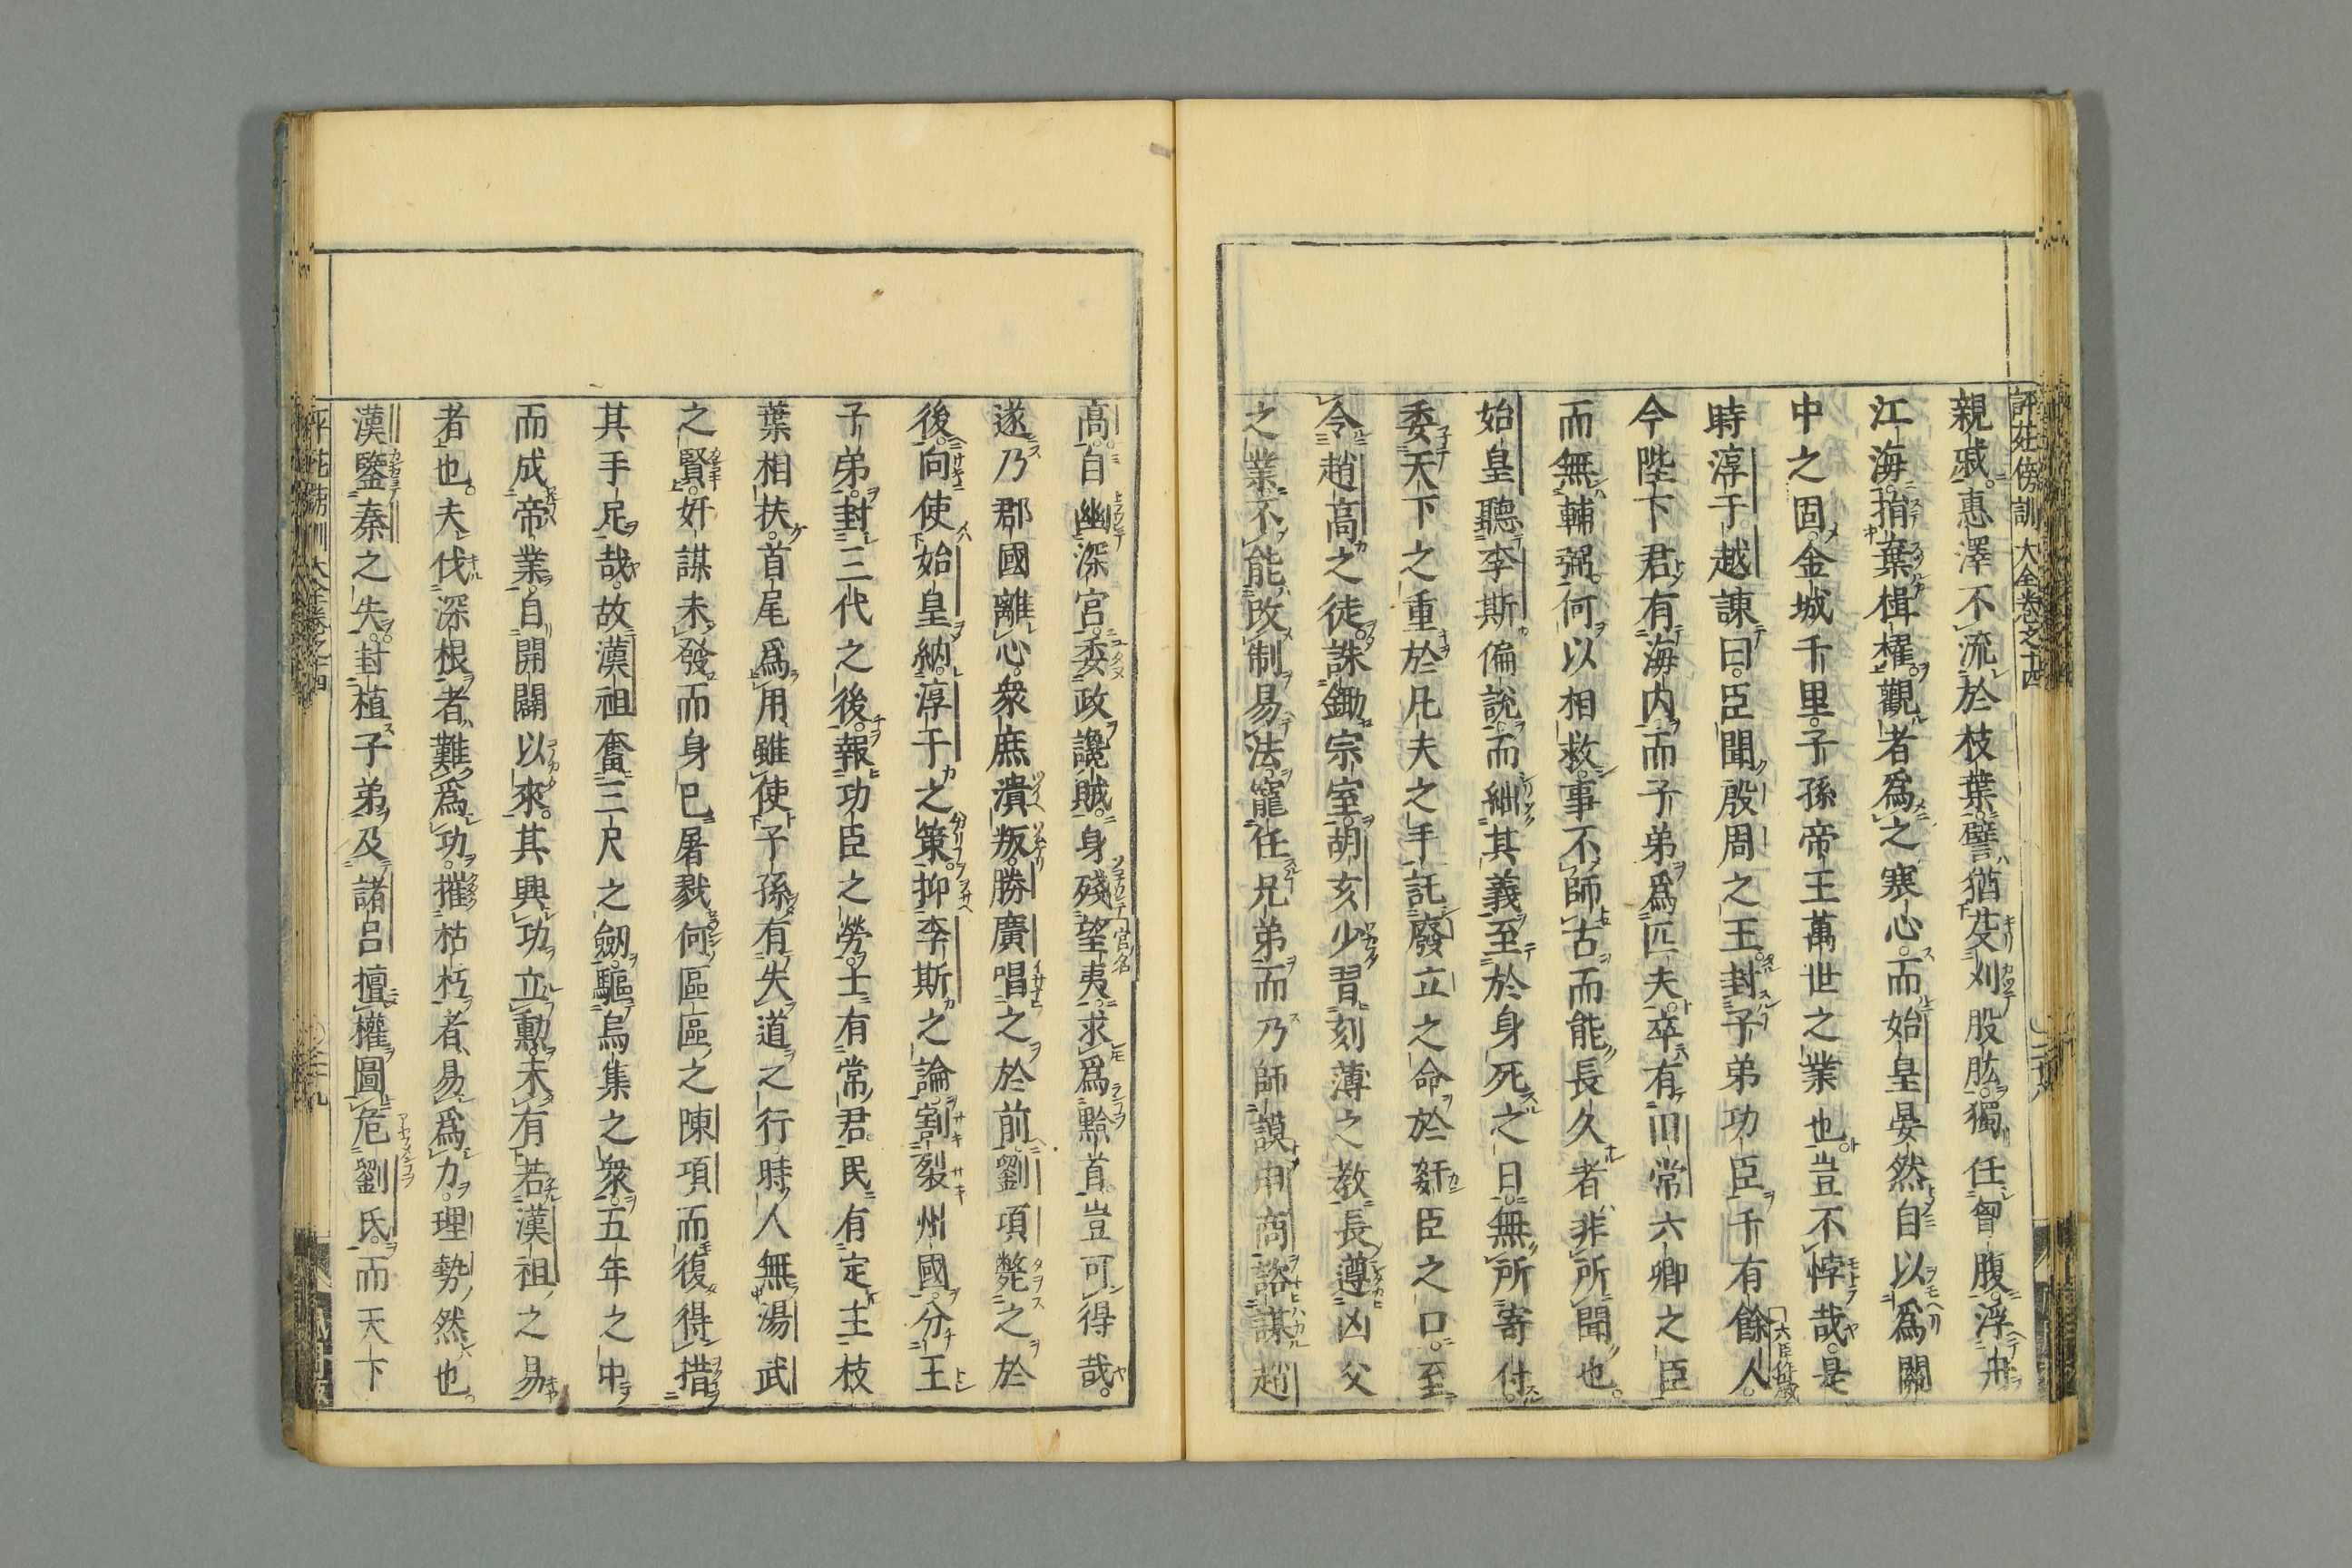 評苑傍訓大全卷之十四
親戚惠澤不流於枝葉譬猶芟刈股肱獨任胷腹浮舟
江海捐棄楫櫂觀者爲之寒心而始皇晏然自以爲關
中之固金城千里子孫帝王萬世之業也豈不悖哉是
時淳于越諫曰臣聞殷周之王封子弟功臣千有餘人
今陛下君有海内而子弟爲匹夫卒有田常六卿之臣
而無輔弼何以相救事不師古而能長久者非所聞也
始皇聽李斯偏說而絀其義至於身死之日無所寄付
委天下之重於凡夫之手託廢立之命於姧臣之口至
令趙高之徒誅鋤宗室胡亥少習刻薄之教長遵凶父
之業不能改制易法寵任兄弟而乃師謨申商諮謀趙
高自幽深宮委政讒賊身殘望夷求爲黔首豈可得哉
遂乃郡國離心衆庶潰叛勝廣唱之於前劉項斃之於
後向使始皇納淳于之策抑李斯之論割裂州國分王
子弟封三代之後報功臣之勞士有常君民有定主枝
葉相扶首尾爲用雖使子孫有失道之行時人無湯武
之賢奸謀未發而身已屠戮何區區之陳項而復得措
其手足哉故漢祖奮三尺之劒驅烏集之衆五年之中
而成帝業自開闢以來其興功立勳未有若漢祖之易
者也夫伐深根者難爲功摧枯朽者易爲力理勢然也
漢鑒秦之失封植子弟及諸呂擅權圖危劉氏而天下
評苑傍訓大全卷之十四